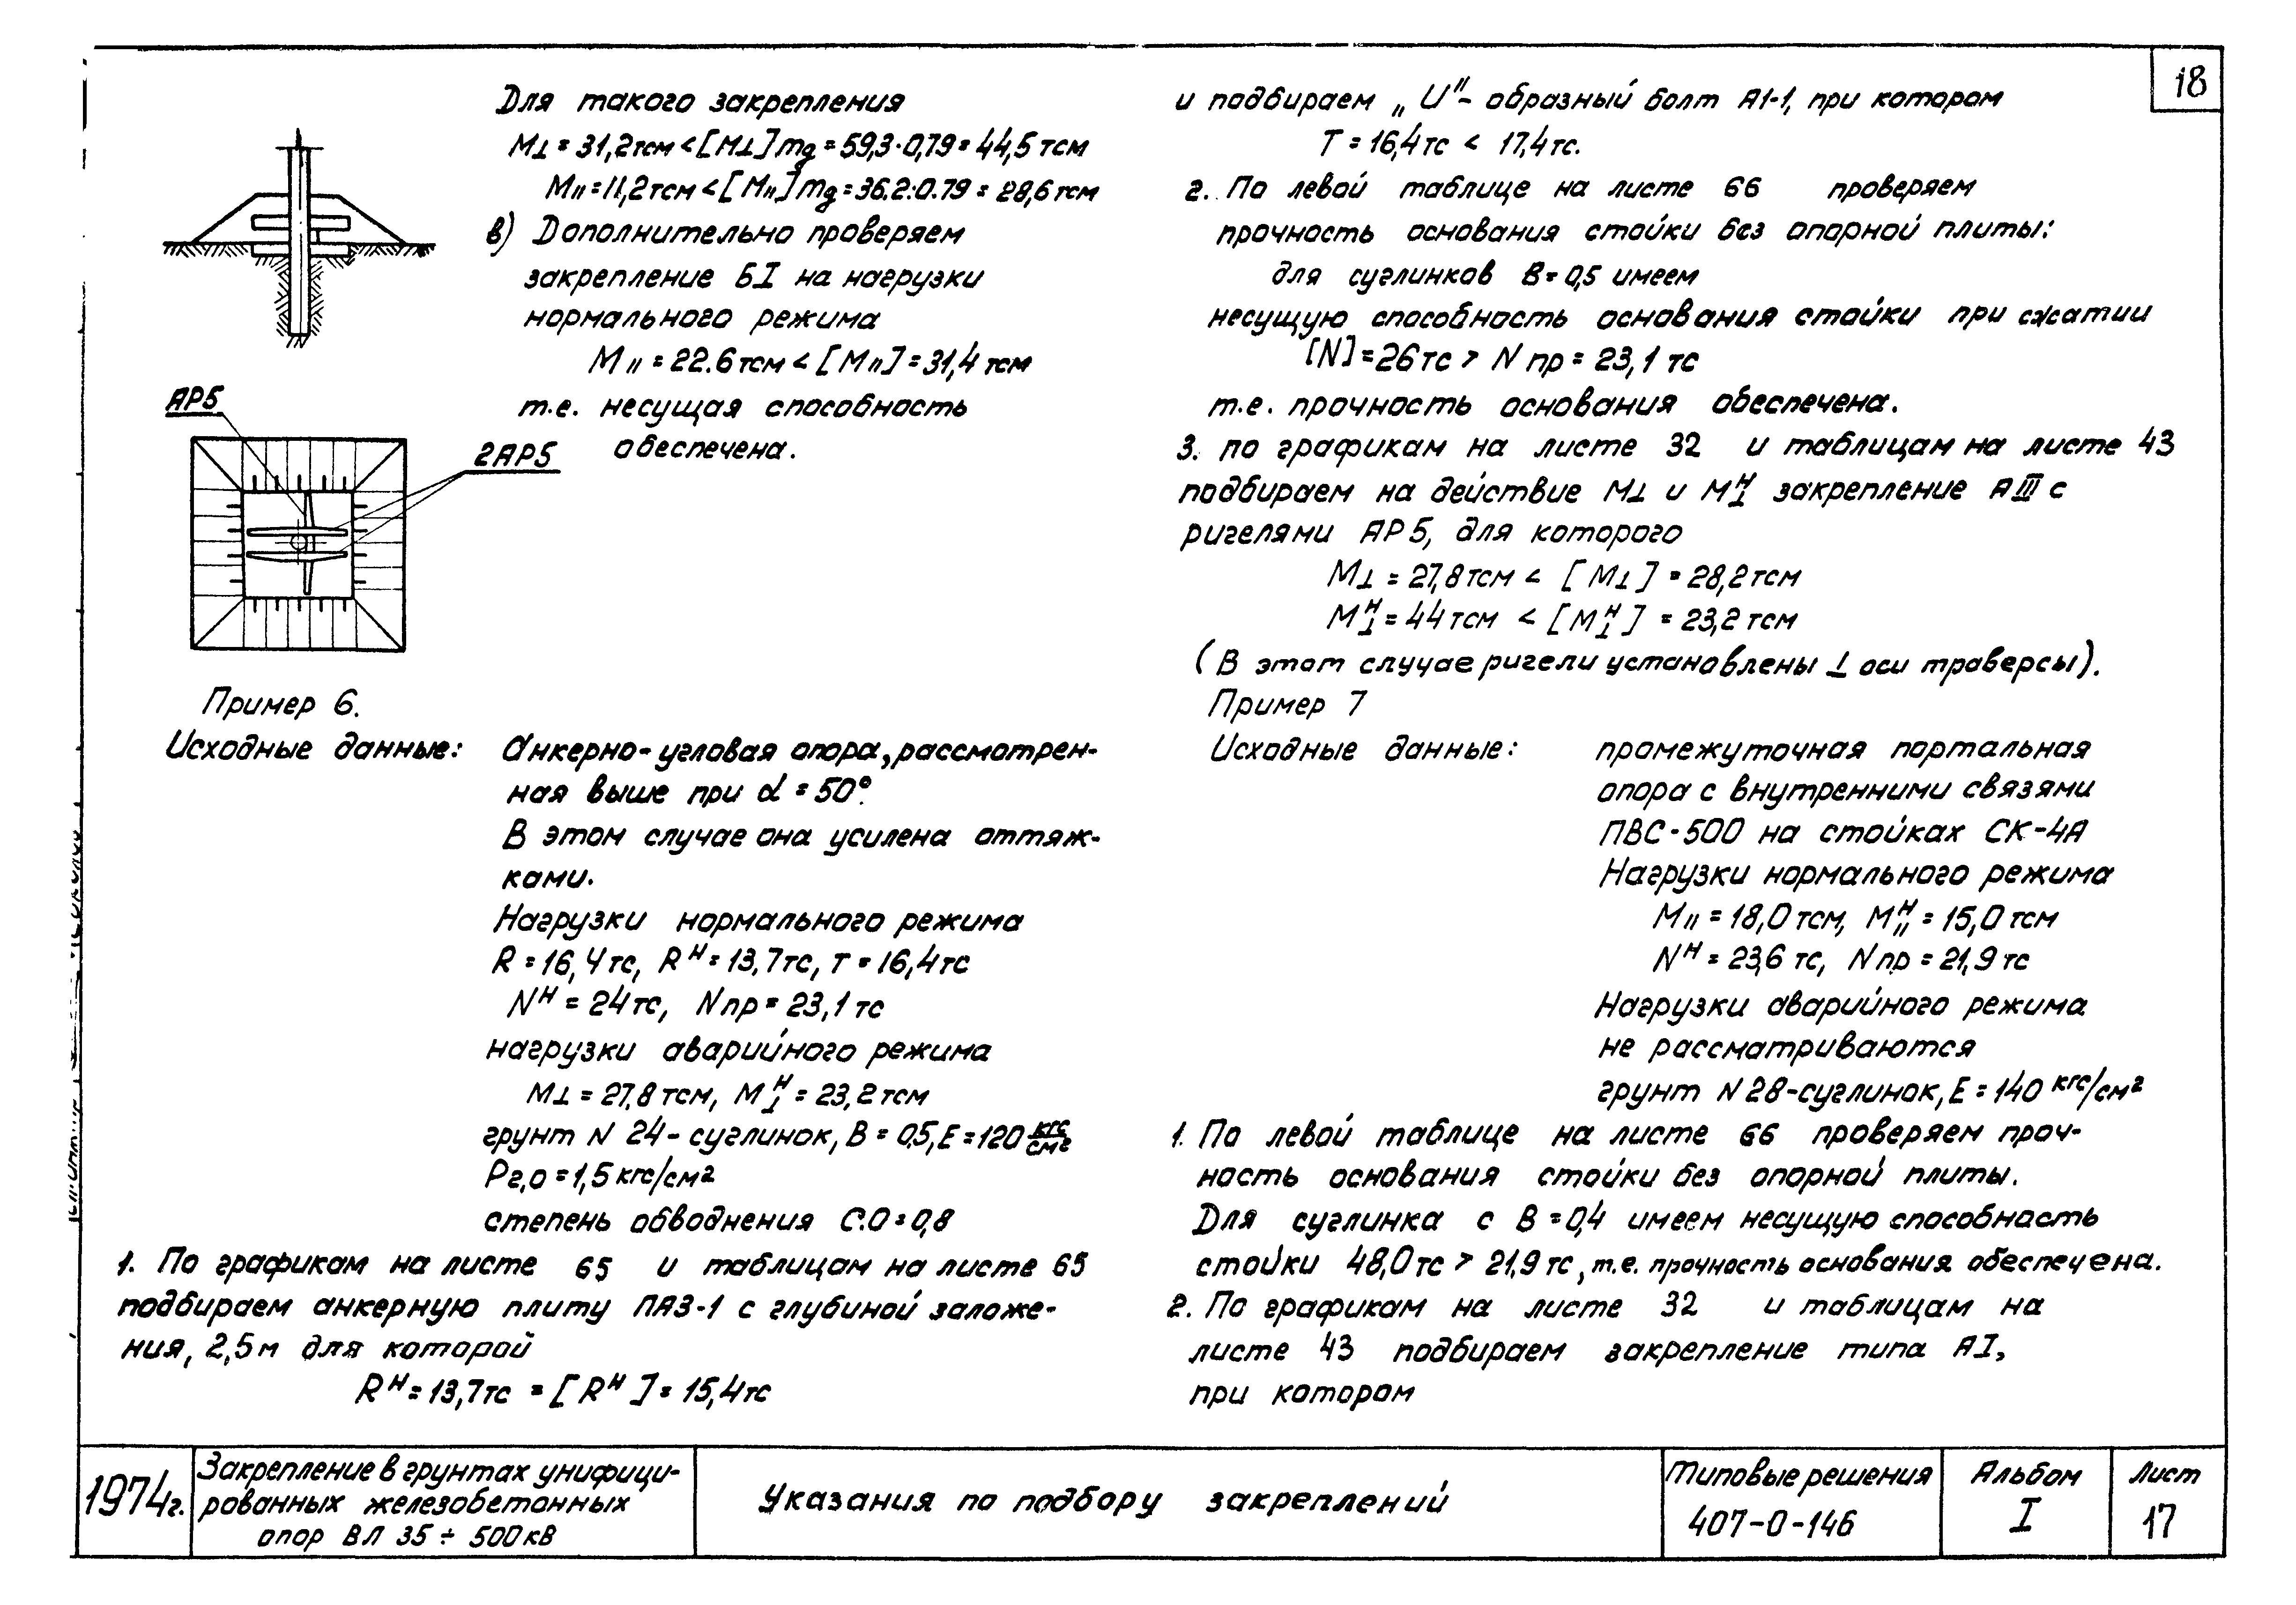 18
Для такого закрепления
М⊥ = 31,2тсм < [М⊥] mg = 59,3·0,79 = 44,5 тсм
М॥ = 11,2тсм < [М॥] mg = 36.2·0.79 = 28,6 тсм
в) Дополнительно проверяем
закрепление БI на нагрузки
нормального режима
М॥ = 22.6 тсм < [М॥] = 31,4 тсм
т.е. несущая способность
обеспечена.
АР5
2АР5
Пример 6.
Исходные данные: Анкерно-угловая опора, рассмотрен-
ная выше при α = 50°.
В этом случае она усилена оттяж-
ками.
Нагрузки нормального режима
R = 16,4тс, Rᴴ = 13,7тс, T = 16,4тс
Nᴴ = 24тс, Nпр = 23,1 тс
нагрузки аварийного режима
М⊥ = 27,8 тсм, М⊥ᴴ = 23,2 тсм
грунт N 24 - суглинок, В = 0,5, Е = 120 кгс/см²
Рг,о = 1,5 кгс/см²
степень обводнения С.О = 0,8
1. По графикам на листе 65 и таблицам на листе 65
подбираем анкерную плиту ПАЗ-1 с глубиной заложе-
ния, 2,5м для которой
Rᴴ = 13,7тс = [Rᴴ] = 15,4тс
и подбираем „U"- образный болт А1-1, при котором
Т = 16,4тс < 17,4тс.
2. По левой таблице на листе 66 проверяем
прочность основания стойки без опорной плиты:
для суглинков В = 0,5 имеем
несущую способность основания стойки при сжатии
[N] = 26тс > Nпр = 23,1 тс
т.е. прочность основания обеспечена.
3. по графикам на листе 32 и таблицам на листе 43
подбираем на действие М⊥ и М⊥ᴴ закрепление АIII с
ригелями АР5, для которого
М⊥ = 27,8тсм < [М⊥] = 28,2тсм
М⊥ᴴ = 44тсм < [М⊥ᴴ] = 23,2 тсм
(В этом случае ригели установлены ⊥ оси траверсы).
Пример 7
Исходные данные: промежуточная портальная
опора с внутренними связями
ПВС-500 на стойках СК-4А
Нагрузки нормального режима
М॥ = 18,0 тсм, М॥ᴴ = 15,0 тсм
Nᴴ = 23,6 тс, Nпр = 21,9 тс
Нагрузки аварийного режима
не рассматриваются
грунт N 28-суглинок, Е = 140 кгс/см²
1. По левой таблице на листе 66 проверяем проч-
ность основания стойки без опорной плиты.
Для суглинка с В = 0,4 имеем несущую способность
стойки 48,0тс > 21,9 тс, т.е. прочность основания обеспечена.
2. По графикам на листе 32 и таблицам на
листе 43 подбираем закрепление типа АI,
при котором
1974г.
Закрепление в грунтах унифици-
рованных железобетонных
опор ВЛ 35 ÷ 500кВ
Указания по подбору закреплений
Типовые решения
407-0-146
Альбом
I
Лист
17